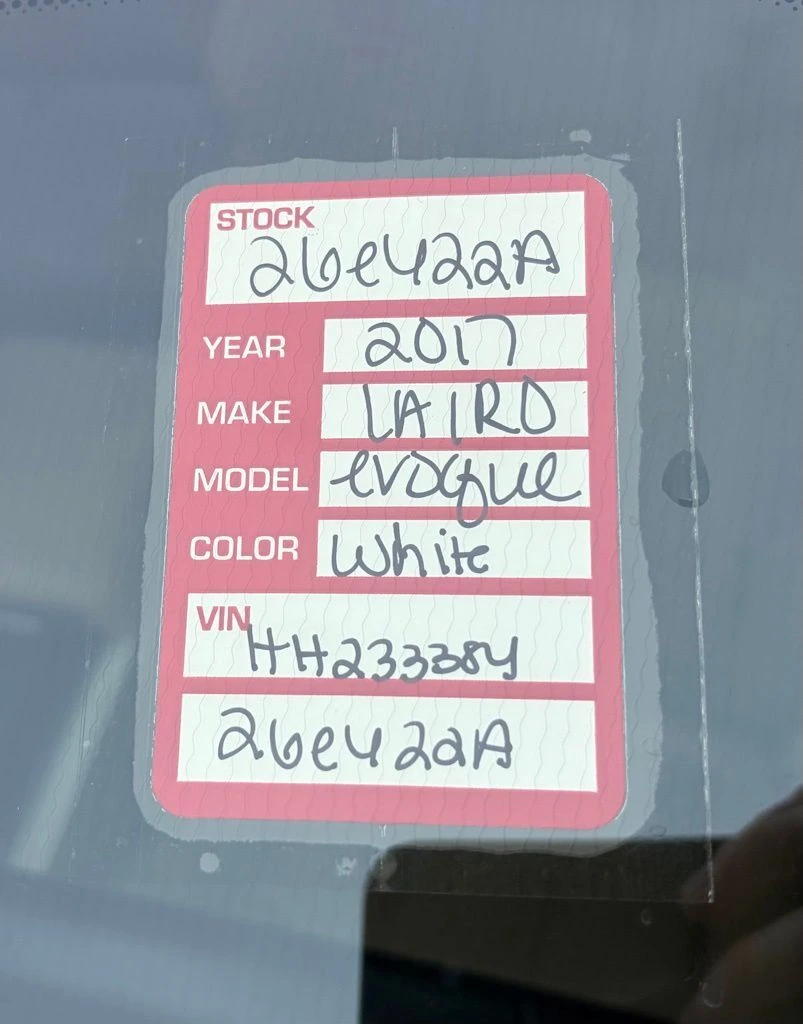 STOCK
26e422A
YEAR 2017
MAKE LAIRD
MODEL evoque
COLOR White
VIN
HH233384
26e422A